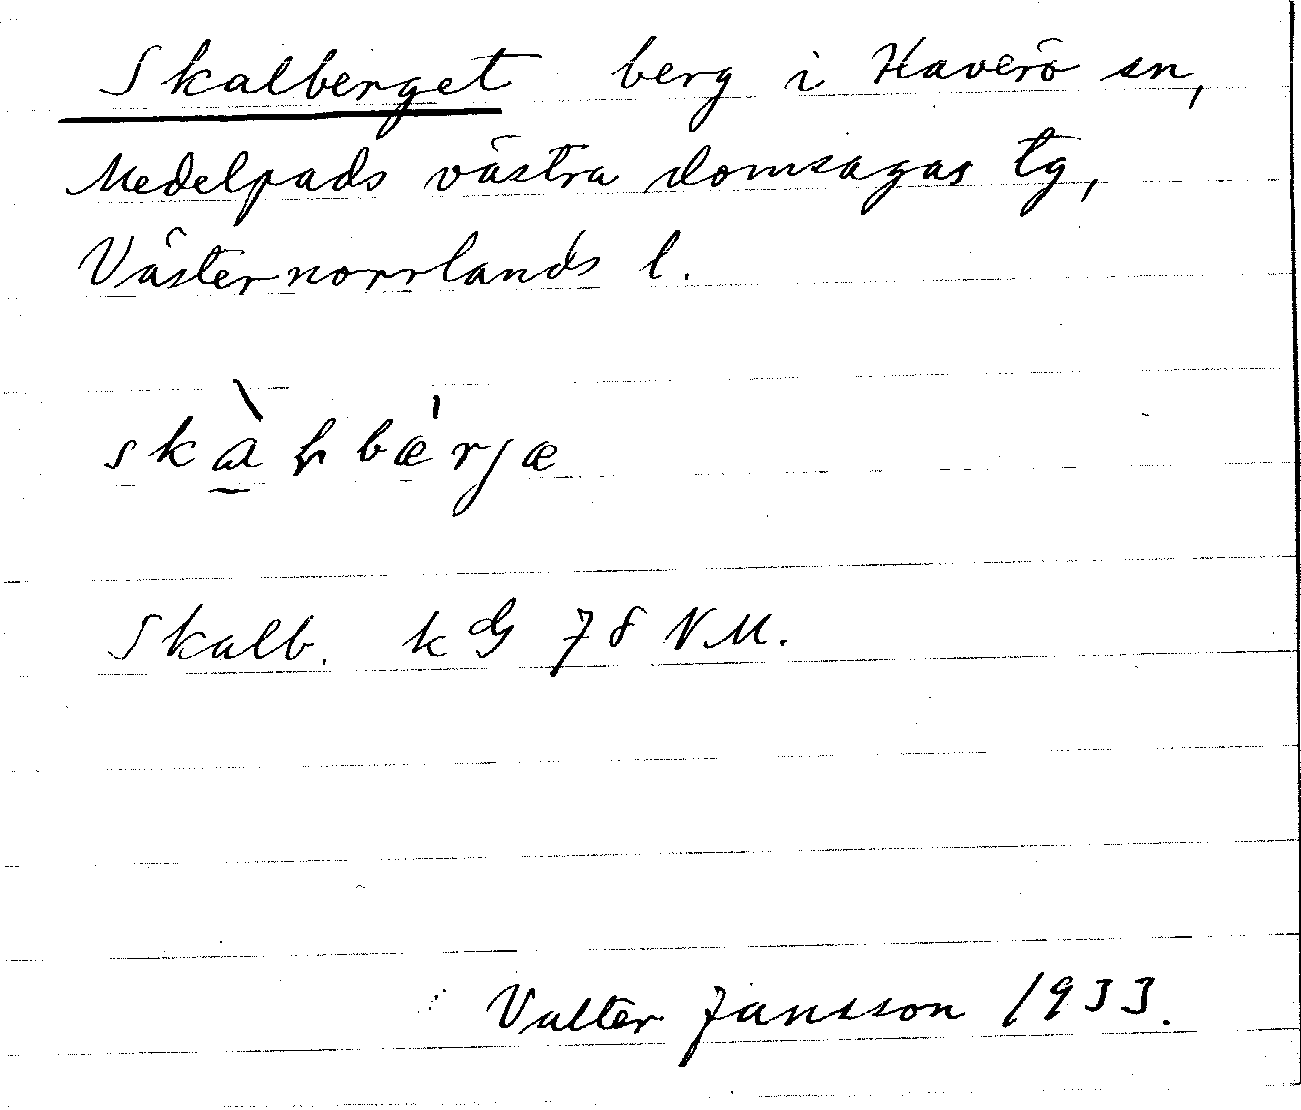 Skalberget berg i Haverö sn,
Medelpads västra domsagas tg,
Västernorrlands l.
Skalb. kG 78 NM.
Valter Jansson 1933.